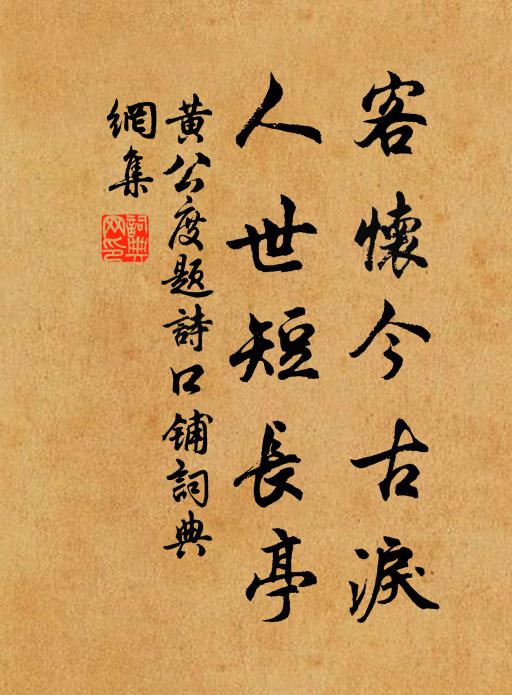 客懷今古淚
人世短長亭
黃公度題詩口鋪詞典
網集
詞典
网印